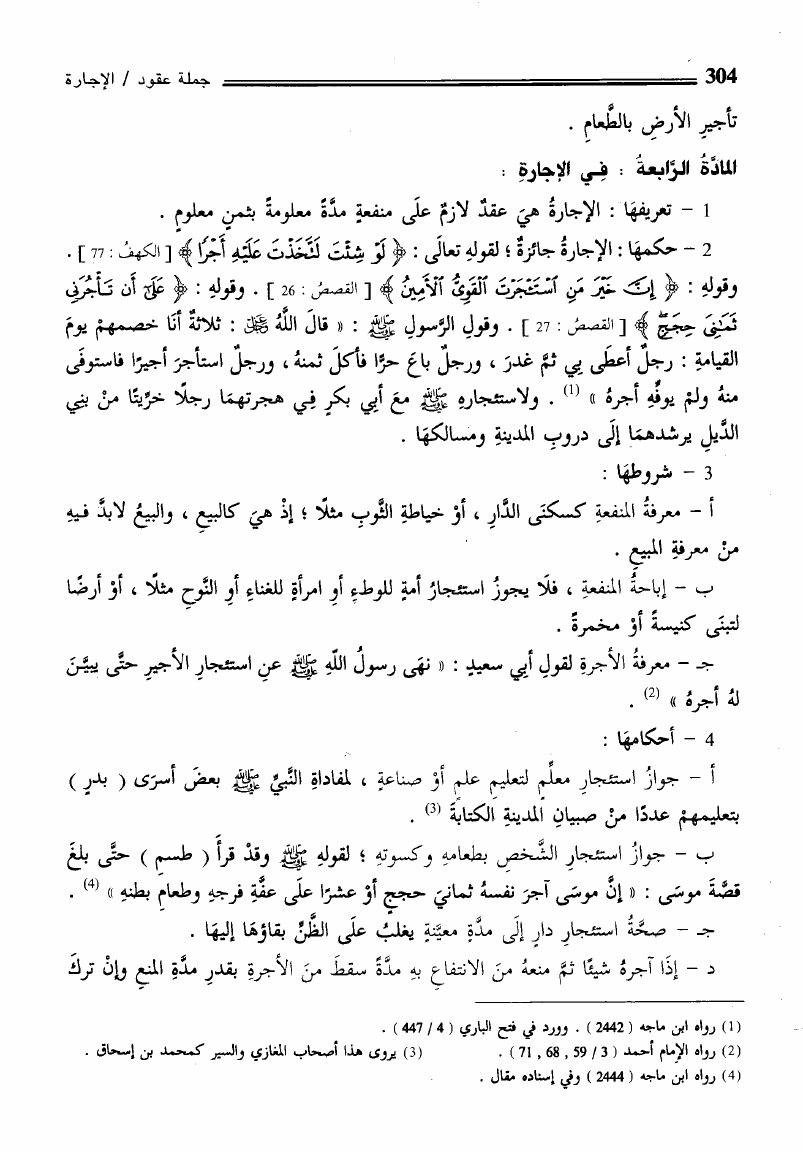 304 جملة عقود / الإجارة
تأجيرِ الأرضِ بالطَّعامِ .
المادَّةُ الرَّابعةُ : فِي الإجارةِ :
1 – تعريفهَا : الإجارةُ هيَ عقدٌ لازمٌ علَى منفعةٍ مدَّةً معلومةً بثمنٍ معلومٍ .
2 – حكمهَا : الإجارةُ جائزةٌ ؛ لقولهِ تعالَى : ﴿ لَوْ شِئْتَ لَتَّخَذْتَ عَلَيْهِ أَجْرًا ﴾ [ الكهفُ : 77 ] .
وقولهِ : ﴿ إِنَّ خَيْرَ مَنِ ٱسْتَـْٔجَرْتَ ٱلْقَوِىُّ ٱلْأَمِينُ ﴾ [ القصصُ : 26 ] . وقولهِ : ﴿ عَلَىٰٓ أَن تَأْجُرَنِى
ثَمَـٰنِىَ حِجَجٍ ﴾ [ القصصُ : 27 ] . وقولِ الرَّسولِ ﷺ : « قالَ اللَّهُ ﷻ : ثلاثةٌ أنَا خصمهمْ يومَ
القيامةِ : رجلٌ أعطَى بِي ثمَّ غدرَ ، ورجلٌ باعَ حرًّا فأكلَ ثمنهُ ، ورجلٌ استأجرَ أجيرًا فاستوفَى
منهُ ولمْ يوفِّهِ أجرهُ » (1) . ولاستئجارهِ ﷺ معَ أبِي بكرٍ فِي هجرتهمَا رجلًا خرِّيتًا منْ بنِي
الدَّيلِ يرشدهمَا إلَى دروبِ المدينةِ ومسالكهَا .
3 – شروطهَا :
أ – معرفةُ المنفعةِ كسكنَى الدَّارِ ، أوْ خياطةِ الثَّوبِ مثلًا ؛ إذْ هيَ كالبيعِ ، والبيعُ لابدَّ فيهِ
منْ معرفةِ المبيعِ .
ب – إباحةُ المنفعةِ ، فلَا يجوزُ استئجارُ أمةٍ للوطءِ أوِ امرأةٍ للغناءِ أوِ النَّوحِ مثلًا ، أوْ أرضًا
لتبنَى كنيسةً أوْ مخمرةً .
جـ – معرفةُ الأجرةِ لقولِ أبِي سعيدٍ : « نهَى رسولُ اللَّهِ ﷺ عنِ استئجارِ الأجيرِ حتَّى يبيَّنَ
لهُ أجرهُ » (2) .
4 – أحكامهَا :
أ – جوازُ استئجارِ معلِّمٍ لتعليمِ علمٍ أوْ صناعةٍ ، لمفاداةِ النَّبيِّ ﷺ بعضَ أسرَى ( بدرٍ )
بتعليمهمْ عددًا منْ صبيانِ المدينةِ الكتابةَ (3) .
ب – جوازُ استئجارِ الشَّخصِ بطعامهِ وكسوتهِ ؛ لقولهِ ﷺ وقدْ قرأَ ( طسم ) حتَّى بلغَ
قصَّةَ موسَى : « إنَّ موسَى آجرَ نفسهُ ثمانيَ حججٍ أوْ عشرًا علَى عفَّةِ فرجهِ وطعامِ بطنهِ » (4) .
جـ – صحَّةُ استئجارِ دارٍ إلَى مدَّةٍ معيَّنةٍ يغلبُ علَى الظَّنِّ بقاؤهَا إليهَا .
د – إذَا آجرهُ شيئًا ثمَّ منعهُ منَ الانتفاعِ بهِ مدَّةً سقطَ منَ الأجرةِ بقدرِ مدَّةِ المنعِ وإنْ تركَ
(1) رواه ابن ماجه ( 2442 ) . وورد في فتح الباري ( 4 / 447 ) .
(2) رواه الإمام أحمد ( 3 / 59 , 68 , 71 ) . (3) يروى هذا أصحاب المغازي والسير كمحمد بن إسحاق .
(4) رواه ابن ماجه ( 2444 ) وفي إسناده مقال .